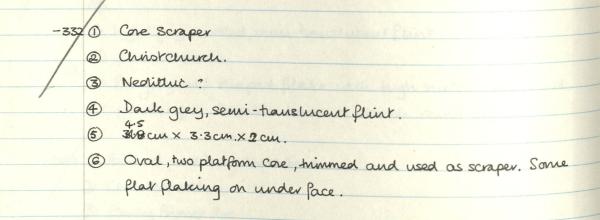 -332 ① Core scraper
② Christchurch.
③ Neolithic ?
④ Dark grey, semi-translucent flint.
⑤ 4.5 cm x 3.3cm. x 2 cm.
⑥ Oval, two platform core, trimmed and used as scraper. Some
flat flaking on under face.